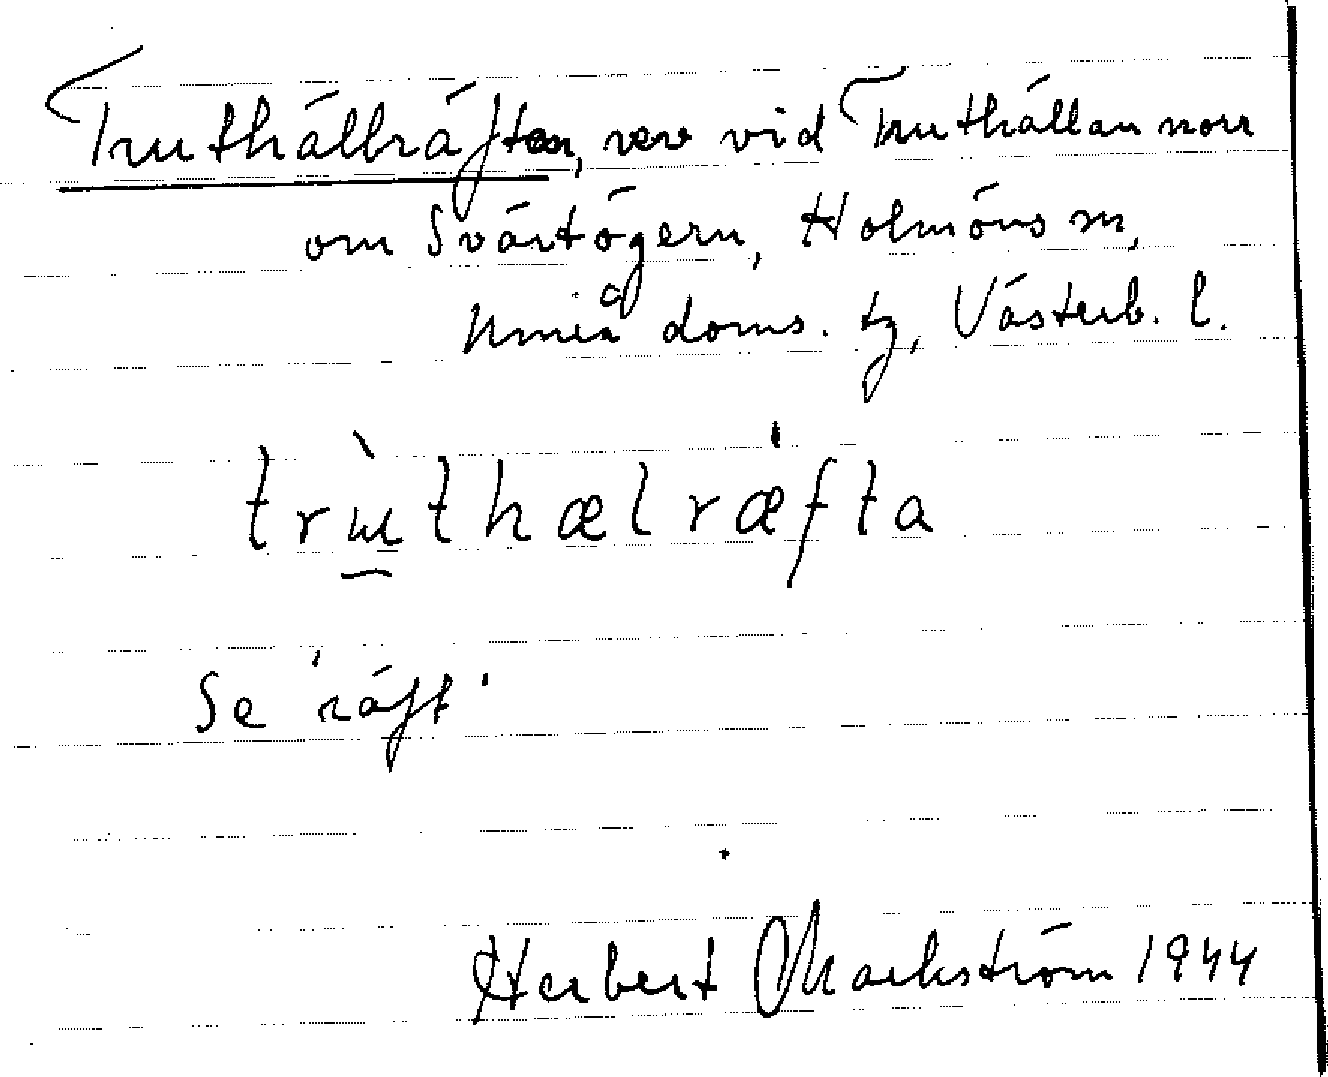 Truthällräftan, rev vid Truthällan norr
om Svärtögern, Holmöns sn,
Umeå doms. tg, Västerb. l.
trùthælræ´fta
Se 'räft'
Herbert Markström 1944